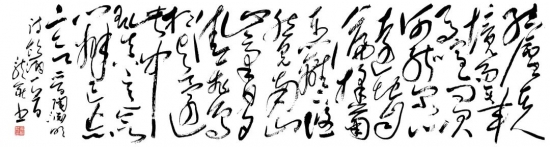 结庐在人
境而无车
马喧问君
何能尔心
远地自
偏采菊
东篱下悠
然见南山
山气日夕
佳飞鸟
相与还
此中
有真意欲
辨已忘
言 晋陶渊明
诗饮酒
书